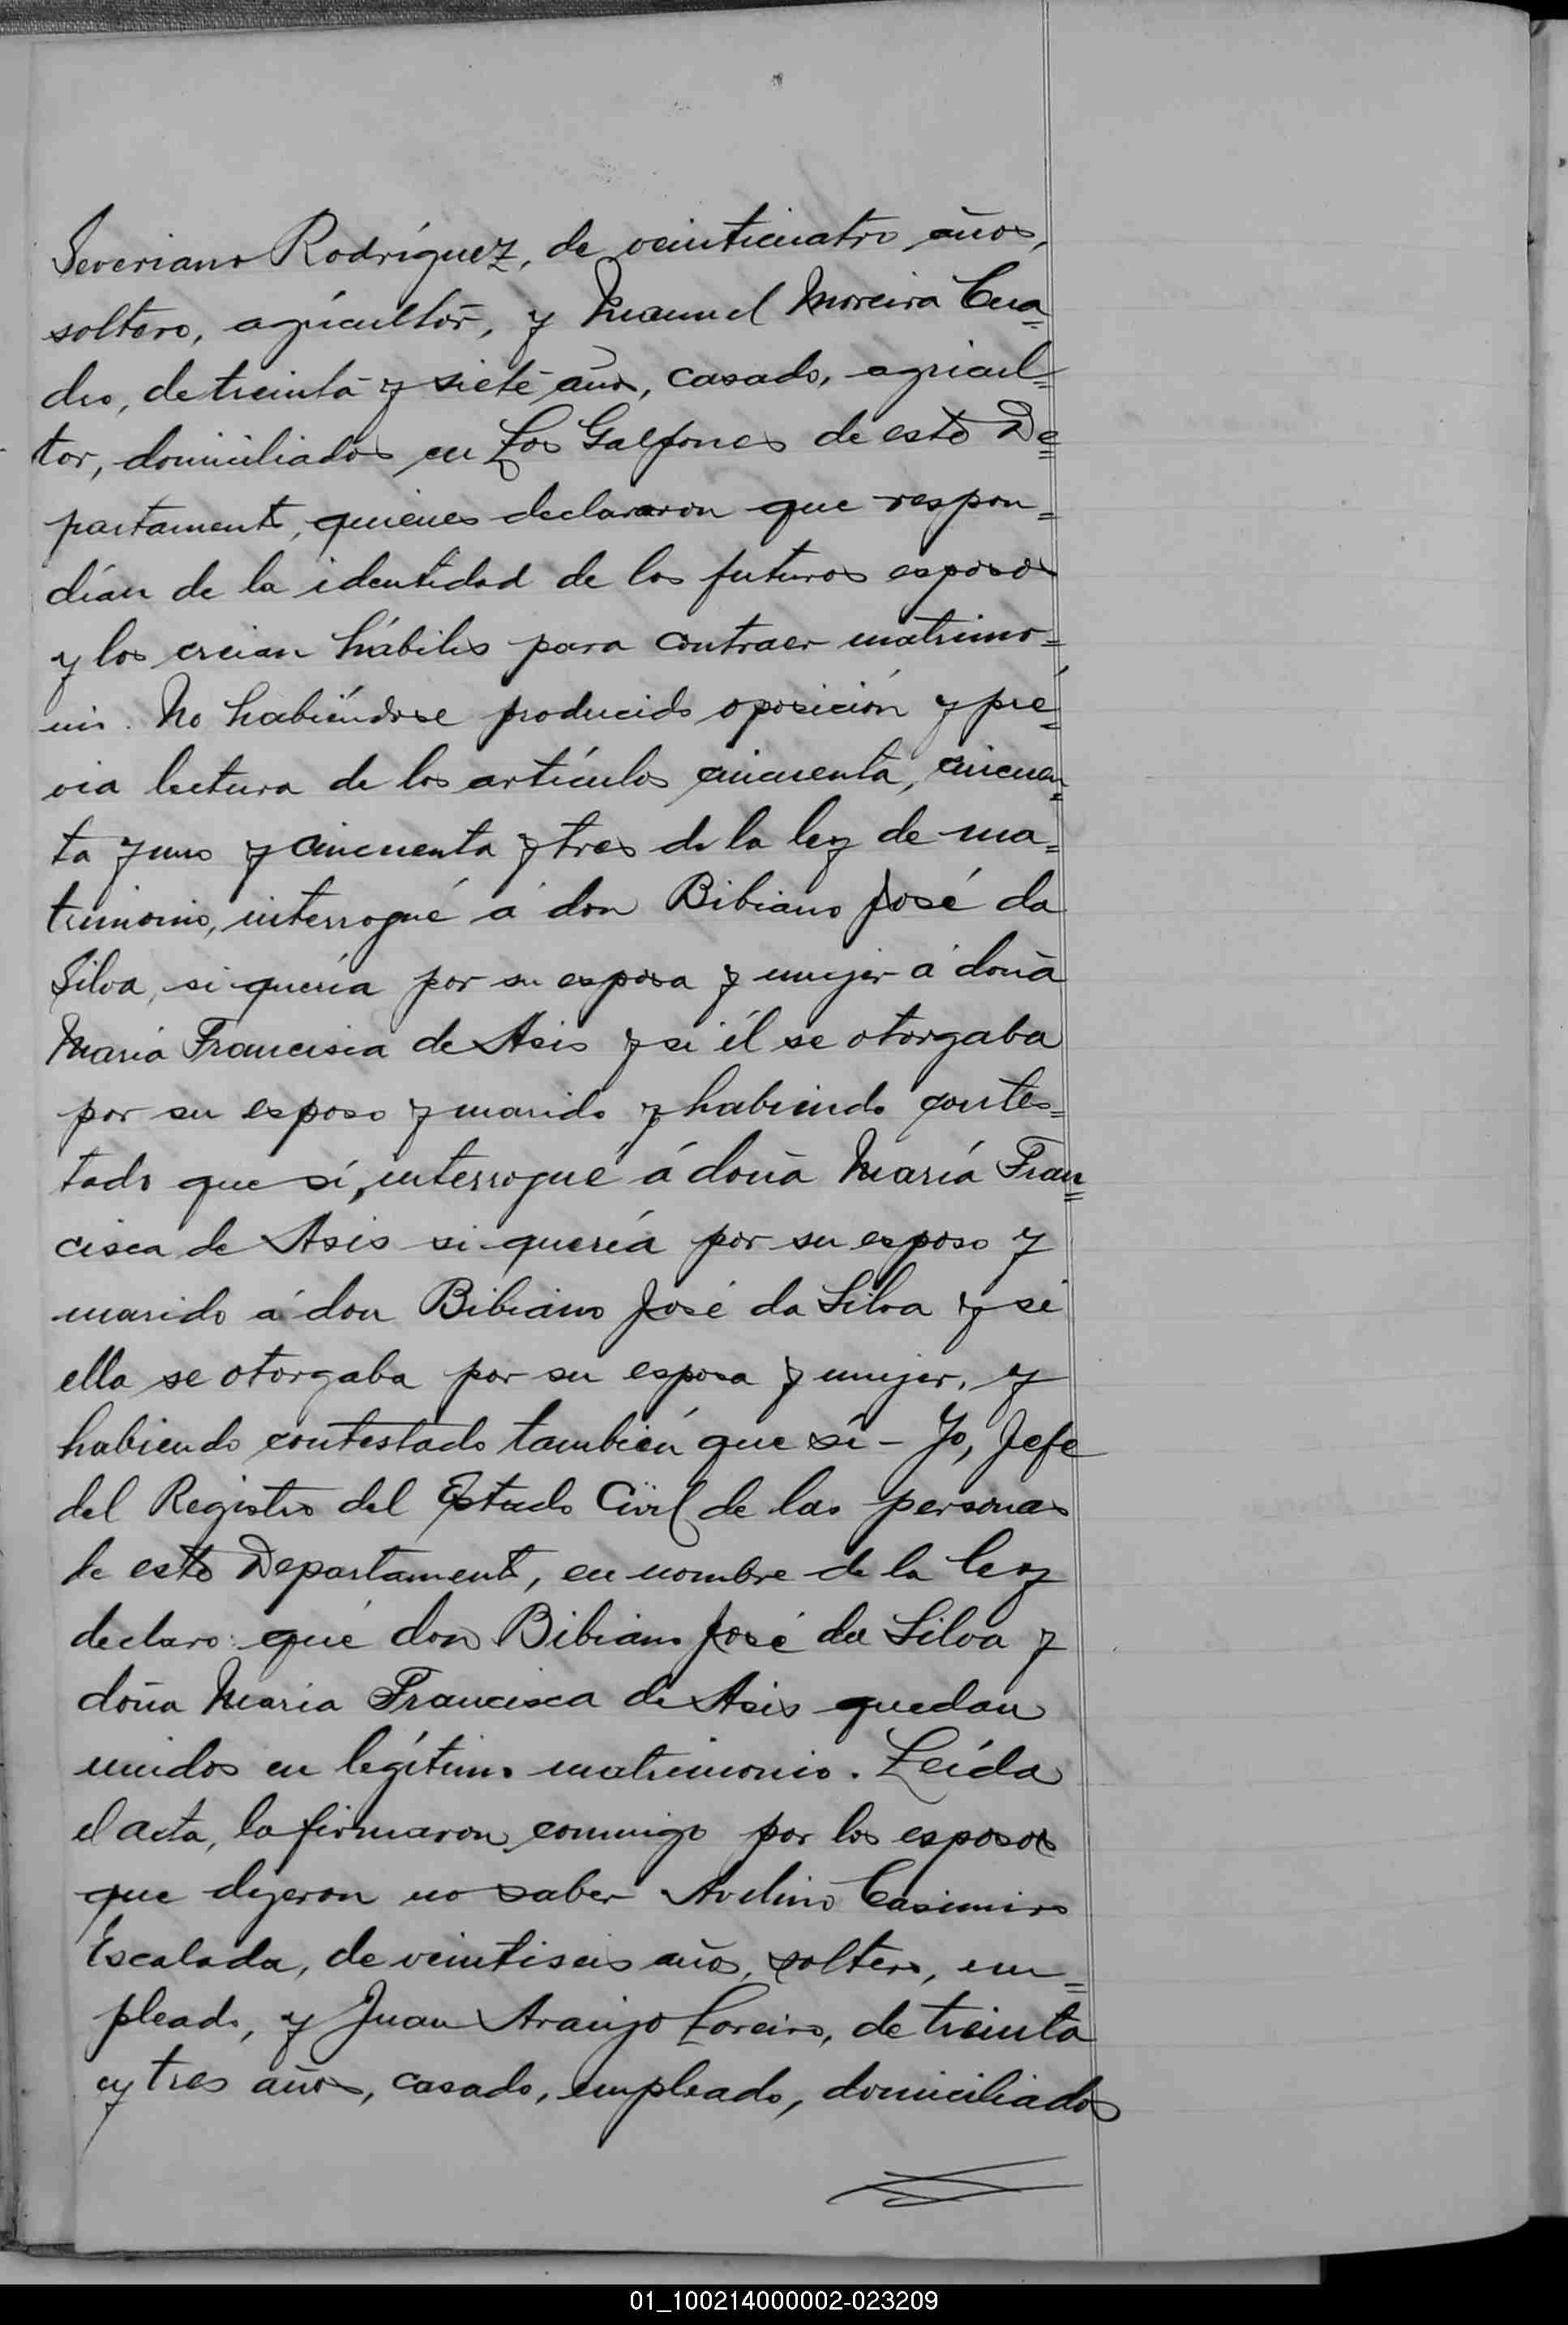 Severiano Rodríguez, de veinticuatro años,
soltero, agricultor, y Manuel Moreira Cua=
dro, de treinta y siete años, casado, agricul=
tor, domiciliados en Los Galpones de este De=
partamento, quienes declararon que respon=
dían de la identidad de los futuros esposos
y los creian hábiles para contraer matrimo=
nio. No habiéndose producido oposición y pré=
via lectura de los artículos cincuenta, cincuen=
ta y uno y cincuenta y tres de la ley de ma=
trimonio, interrogué á don Bibiano José da
Silva, si quería por su esposa y mujer á doña
María Francisca de Asis y si él se otorgaba
por su esposo y marido y habiendo contes=
tado que sí, interrogué á doña María Fran=
cisca de Asis si quería por su esposo y
marido á don Bibiano José da Silva y si
ella se otorgaba por su esposa y mujer, y
habiendo contestado también que sí - Yo, Jefe
del Registro del Estado Civil de las personas
de este Departamento, en nombre de la ley
declaro: que don Bibiano José da Silva y
doña Maria Francisca de Asis quedan
unidos en legítimo matrimonio. Leída
el acta, la firmaron conmigo por los esposos
que dijeron no saber Avelino Casimiro
Escalada, de veintiseis años, soltero, em=
pleado, y Juan Araujo Loreiro, de treinta
y tres años, casado, empleado, domiciliados
01_100214000002-023209